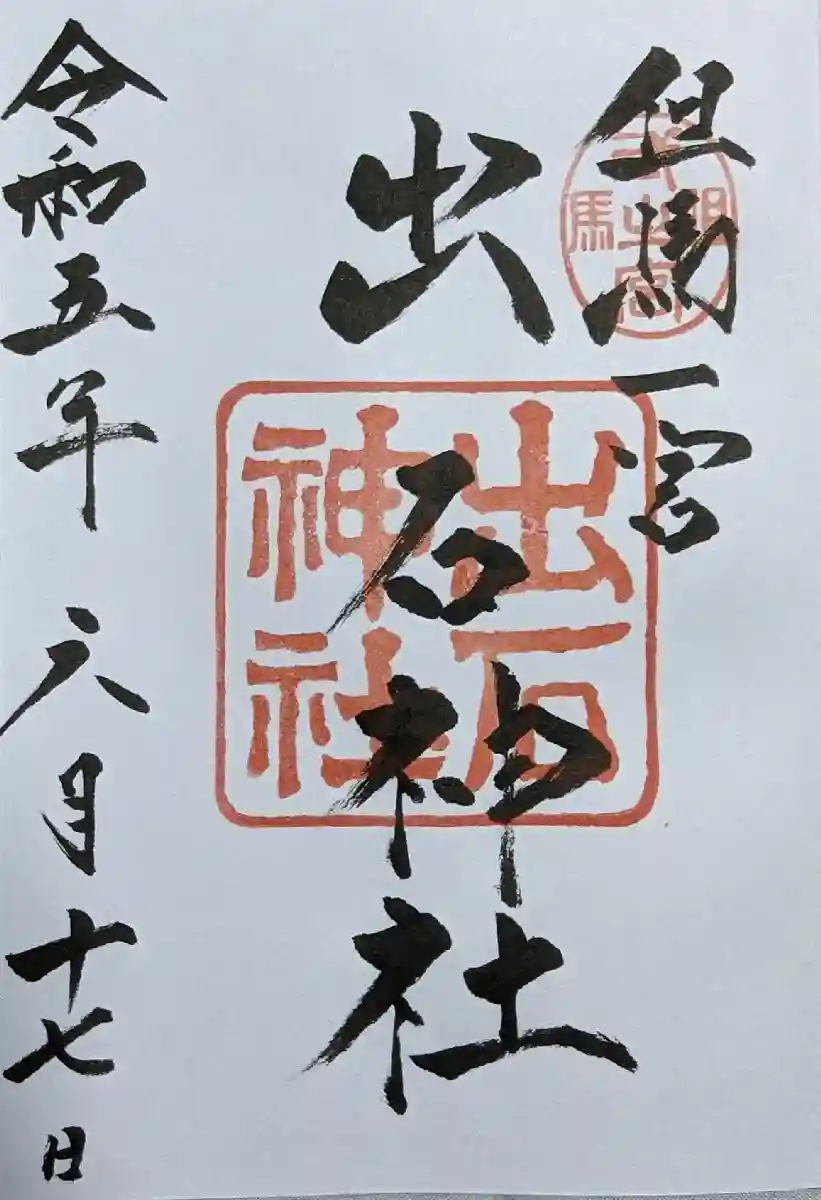 但馬一宮
出石神社
令和五年 六月十七日
出石
神社